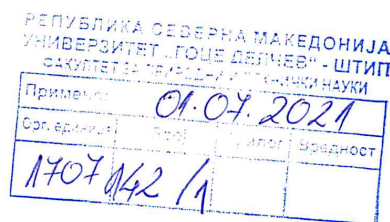 РЕПУБЛИКА СЕВЕРНА МАКЕДОНИЈА
УНИВЕРЗИТЕТ „ГОЦЕ ДЕЛЧЕВ“ - ШТИП
ФАКУЛТЕТ ЗА ПРИРОДНИ И ТЕХНИЧКИ НАУКИ
Примено: 01.07.2021
Орг. единица Број Прилог Вредност
1707 142 /1